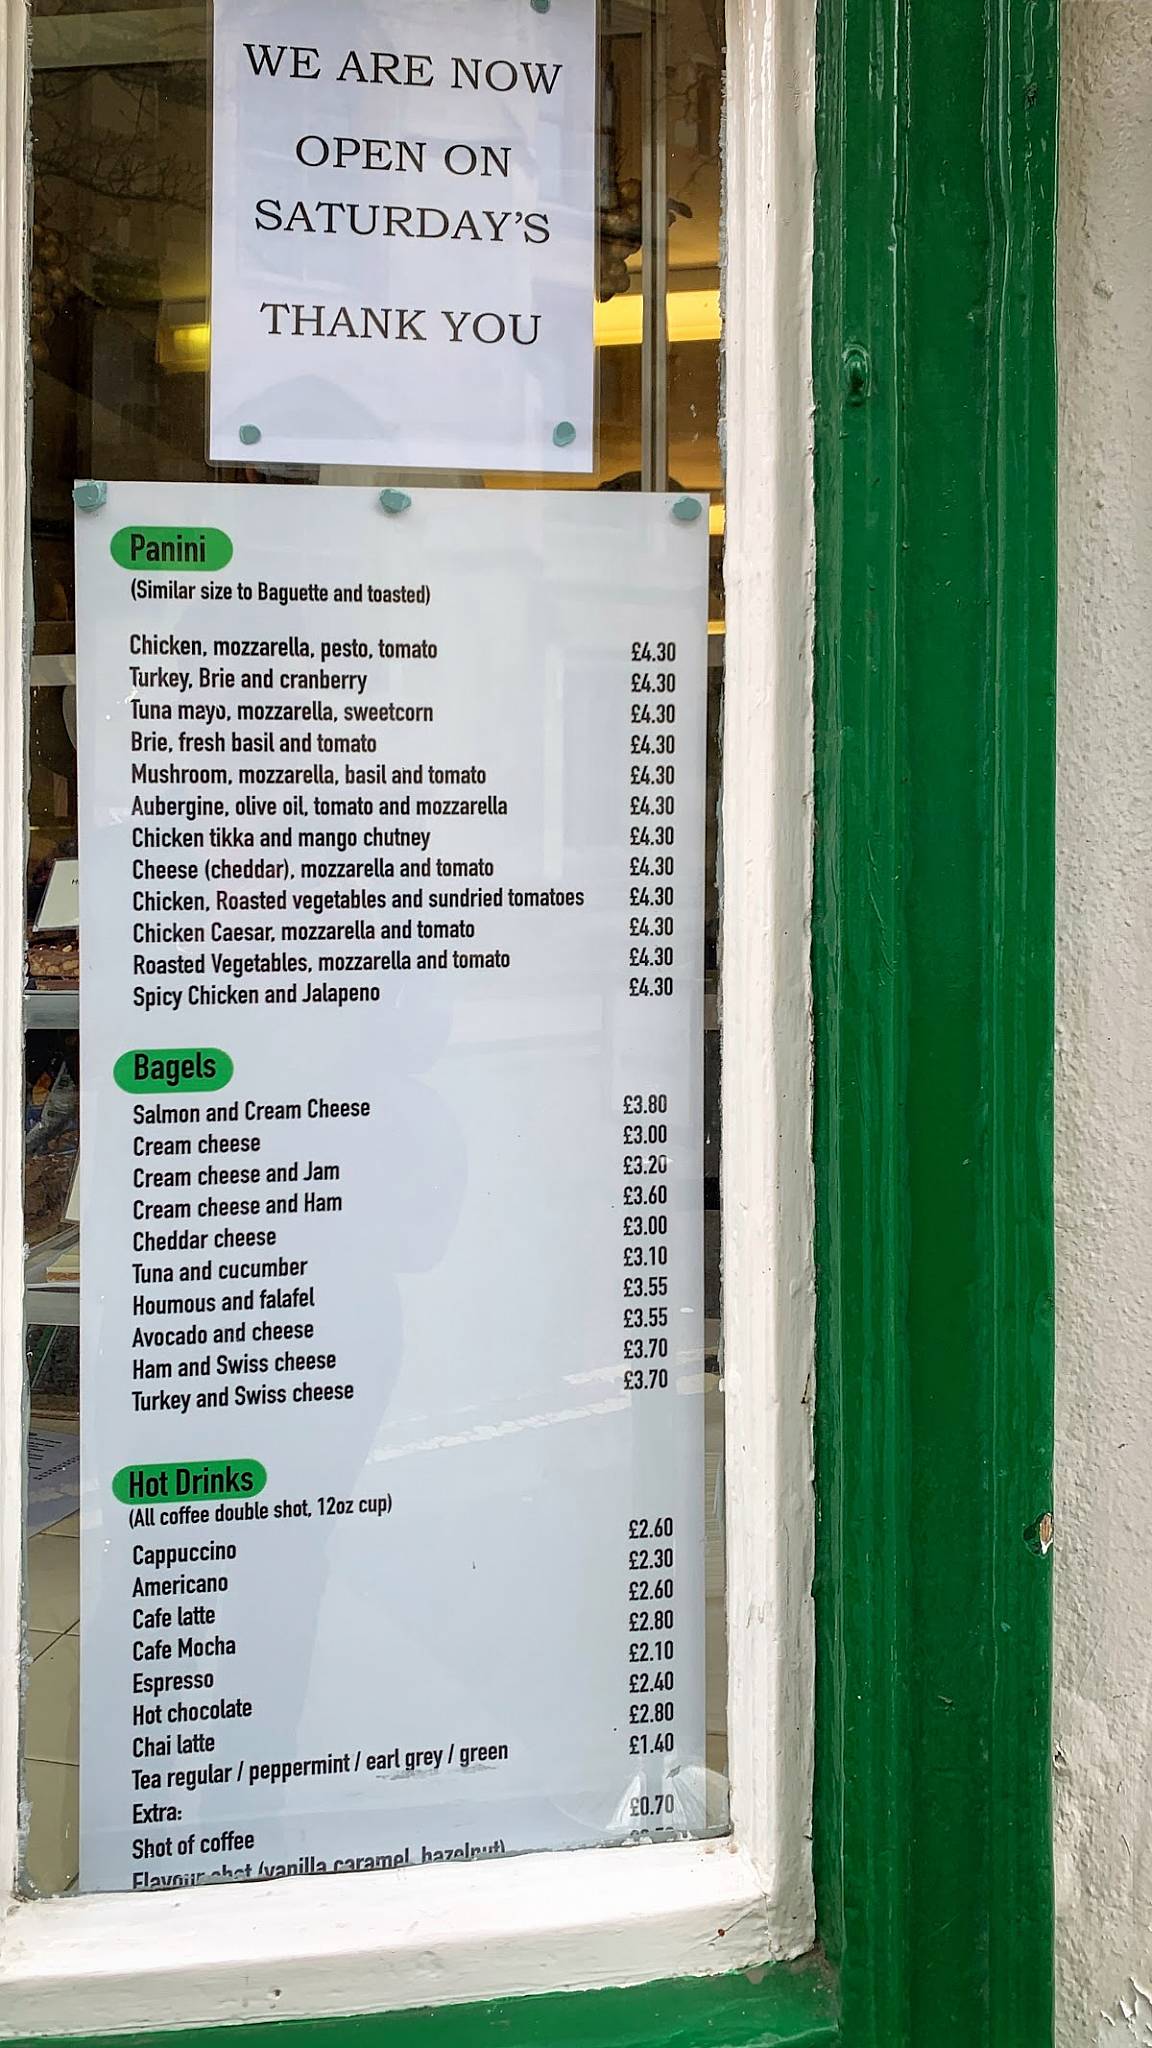 WE ARE NOW
OPEN ON
SATURDAY'S
THANK YOU
Panini
(Similar size to Baguette and toasted)
Chicken, mozzarella, pesto, tomato £4.30
Turkey, Brie and cranberry £4.30
Tuna mayo, mozzarella, sweetcorn £4.30
Brie, fresh basil and tomato £4.30
Mushroom, mozzarella, basil and tomato £4.30
Aubergine, olive oil, tomato and mozzarella £4.30
Chicken tikka and mango chutney £4.30
Cheese (cheddar), mozzarella and tomato £4.30
Chicken, Roasted vegetables and sundried tomatoes £4.30
Chicken Caesar, mozzarella and tomato £4.30
Roasted Vegetables, mozzarella and tomato £4.30
Spicy Chicken and Jalapeno £4.30
Bagels
Salmon and Cream Cheese £3.80
Cream cheese £3.00
Cream cheese and Jam £3.20
Cream cheese and Ham £3.60
Cheddar cheese £3.00
Tuna and cucumber £3.10
Houmous and falafel £3.55
Avocado and cheese £3.55
Ham and Swiss cheese £3.70
Turkey and Swiss cheese £3.70
Hot Drinks
(All coffee double shot, 12oz cup)
Cappuccino £2.60
Americano £2.30
Cafe latte £2.60
Cafe Mocha £2.80
Espresso £2.10
Hot chocolate £2.40
Chai latte £2.80
Tea regular / peppermint / earl grey / green £1.40
Extra:
Shot of coffee £0.70
Flavour shot (vanilla caramel, hazelnut)